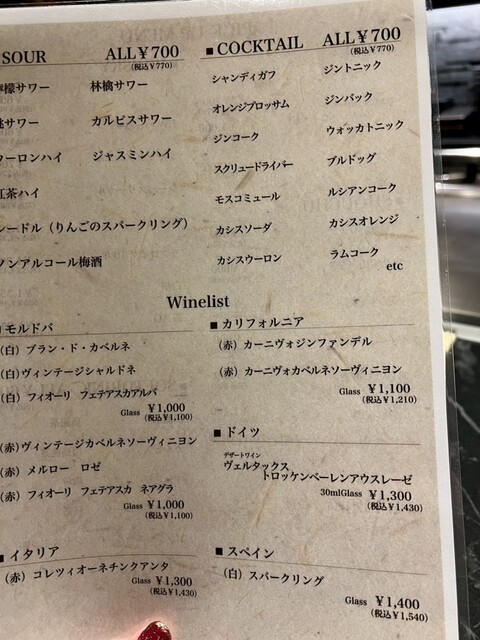 SOUR ALL￥700
(税込￥770)
檬サワー 林檎サワー
サワー カルピスサワー
ーロンハイ ジャスミンハイ
紅茶ハイ
ードル（りんごのスパークリング）
ノンアルコール梅酒
■ COCKTAIL ALL￥700
(税込￥770)
シャンディガフ ジントニック
オレンジブロッサム ジンバック
ジンコーク ウォッカトニック
スクリュードライバー ブルドッグ
モスコミュール ルシアンコーク
カシスソーダ カシスオレンジ
カシスウーロン ラムコーク
etc
Winelist
モルドバ
（白）ブラン・ド・カベルネ
（白）ヴィンテージシャルドネ
（白）フィオーリ フェテアスアルバ
Glass ￥1,000
(税込￥1,100)
（赤）ヴィンテージカベルネソーヴィニヨン
（赤）メルロー ロゼ
（赤）フィオーリ フェテアスカ ネアグラ
Glass ￥1,000
(税込￥1,100)
■ イタリア
（赤）コレツィオーネチンクアンタ
Glass ￥1,300
(税込￥1,430)
■ カリフォルニア
（赤）カーニヴォジンファンデル
（赤）カーニヴォカベルネソーヴィニヨン
Glass ￥1,100
(税込￥1,210)
■ ドイツ
デザートワイン
ヴェルタックス
トロッケンベーレンアウスレーゼ
30mlGlass ￥1,300
(税込￥1,430)
■ スペイン
（白）スパークリング
Glass ￥1,400
(税込￥1,540)